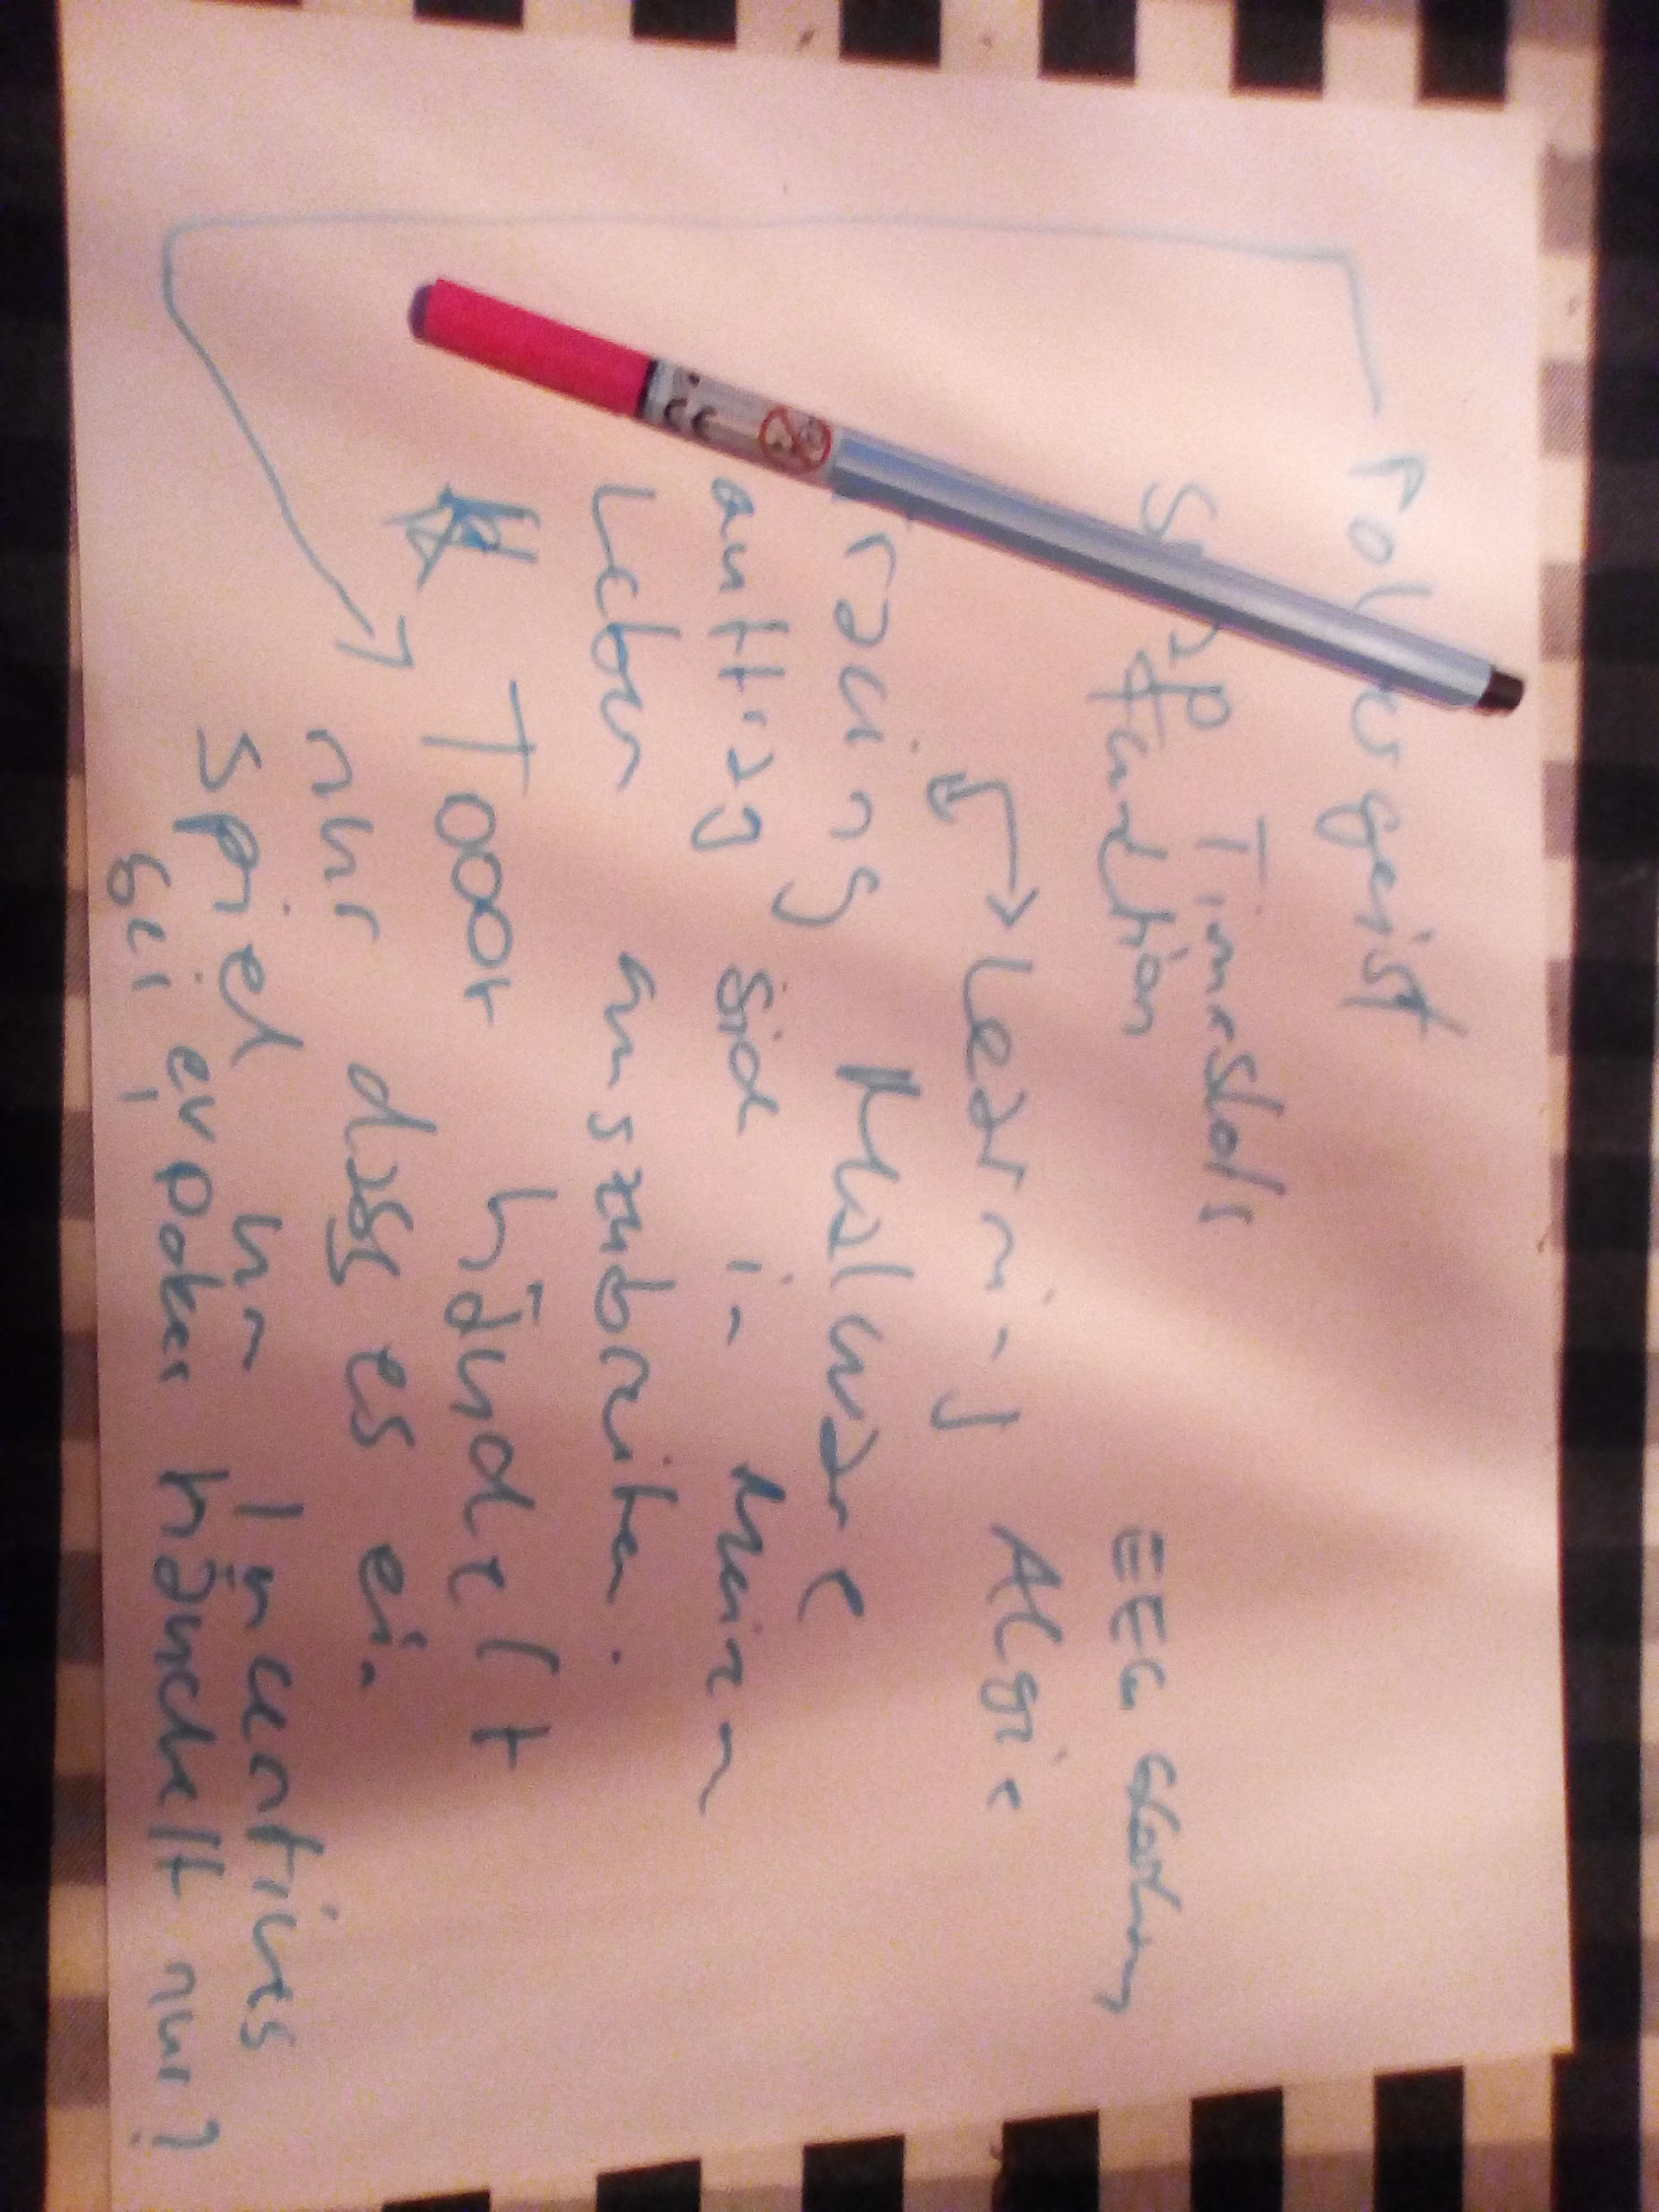 Timeslots
Function
EEG
Learning Algie
Tracing Malware
auftrag sich in Meinem
Leben auszubreiten.
Tooor händelt
nur dass es ein
Spiel um Incentives
sei ev Poker händelt nur?